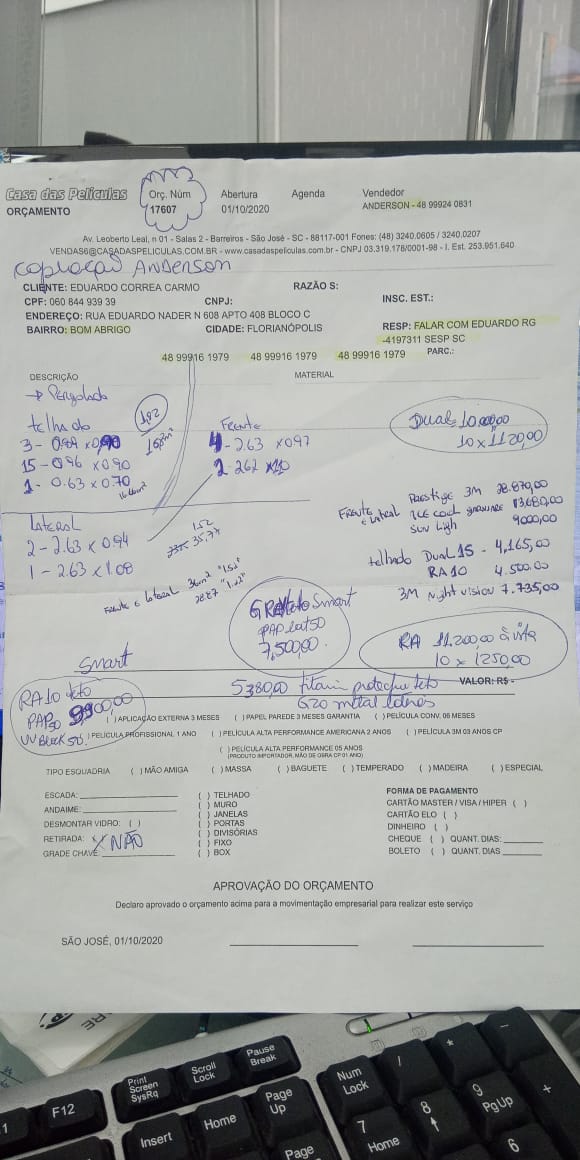 Casa das Películas
ORÇAMENTO
Orç. Núm
17607
Abertura
01/10/2020
Agenda
Vendedor
ANDERSON - 48 99924 0831
Av. Leoberto Leal, n 01 - Salas 2 - Barreiros - São José - SC - 88117-001 Fones: (48) 3240.0605 / 3240.0207
VENDAS6@CASADASPELICULAS.COM.BR - www.casadaspeliculas.com.br - CNPJ 03.319.178/0001-98 - I. Est. 253.951.640
Anderson
CLIENTE: EDUARDO CORREA CARMO RAZÃO S:
CPF: 060 844 939 39 CNPJ: INSC. EST.:
ENDEREÇO: RUA EDUARDO NADER N 608 APTO 408 BLOCO C
BAIRRO: BOM ABRIGO CIDADE: FLORIANÓPOLIS
RESP: FALAR COM EDUARDO RG
-4197311 SESP SC
48 99916 1979 48 99916 1979 48 99916 1979 PARC.:
DESCRIÇÃO MATERIAL
→ Pergolado
telhado
152
15 - 0.96 x 0.90
1 - 0.63 x 0.70
Frente
4 - 2.63 x 097
Dual 10.000,00
10 x 1120,00
Lateral
2 - 2.63 x 0.94
1 - 2.63 x 1.08
152
35.74
Frente e lateral 36m² "152"
28.87 "1.22"
Frente e lateral
Prestige 3M 28.870,00
13.680,00
Sun Ligh 9000,00
telhado Dual 15 - 4,165,00
RA 10 4.500.00
3M Night vision 7.735,00
Smart
PAP lat 50
7,500,00
RA 11.200,00 à vista
10 x 1250,00
Smart
RA 10 teto
PAP 50 9900,00
UV Block 50
5380,00 titanio protection teto VALOR: R$ -
G20 metal
( ) APLICAÇÃO EXTERNA 3 MESES ( ) PAPEL PAREDE 3 MESES GARANTIA ( ) PELÍCULA CONV. 06 MESES
( ) PELÍCULA PROFISSIONAL 1 ANO ( ) PELÍCULA ALTA PERFORMANCE AMERICANA 2 ANOS ( ) PELÍCULA 3M 03 ANOS CP
( ) PELÍCULA ALTA PERFORMANCE 05 ANOS
(PRODUTO IMPORTADOR, MÃO DE OBRA CP 01 ANO)
TIPO ESQUADRIA ( ) MÃO AMIGA ( ) MASSA ( ) BAGUETE ( ) TEMPERADO ( ) MADEIRA ( ) ESPECIAL
ESCADA:
ANDAIME:
DESMONTAR VIDRO: ( )
RETIRADA: X NÃO
GRADE CHAVE:
( ) TELHADO
( ) MURO
( ) JANELAS
( ) PORTAS
( ) DIVISÓRIAS
( ) FIXO
( ) BOX
FORMA DE PAGAMENTO
CARTÃO MASTER / VISA / HIPER ( )
CARTÃO ELO ( )
DINHEIRO ( )
CHEQUE ( ) QUANT. DIAS:
BOLETO ( ) QUANT. DIAS
APROVAÇÃO DO ORÇAMENTO
Declaro aprovado o orçamento acima para a movimentação empresarial para realizar este serviço
SÃO JOSÉ, 01/10/2020
F12
Print Screen SysRq
Scroll Lock
Pause Break
Insert
Home
Page Up
Page
Num Lock
/
*
-
7 Home
8
9 PgUp
+
6